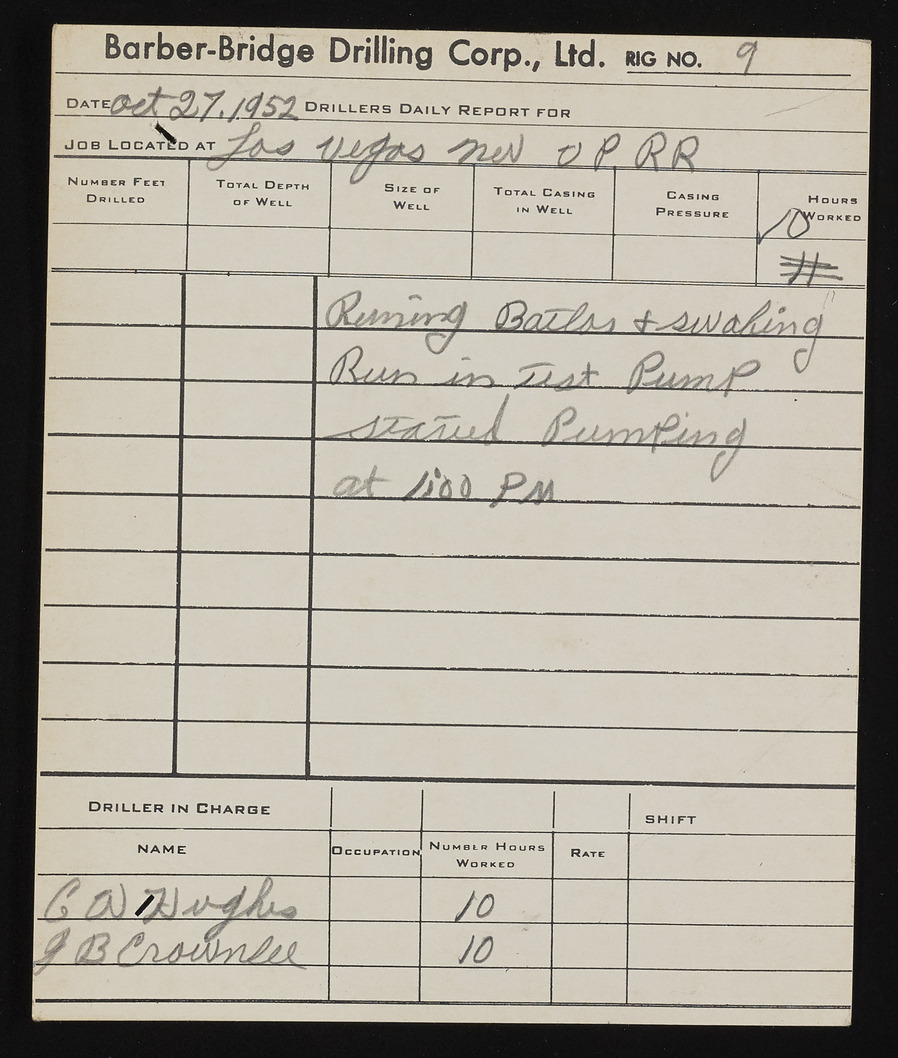 Barber-Bridge Drilling Corp., Ltd. RIG NO. 9
DATE Oct 27. 1952 DRILLERS DAILY REPORT FOR
JOB LOCATED AT Las Vegas Nev U P R R
NUMBER FEET DRILLED TOTAL DEPTH OF WELL SIZE OF WELL TOTAL CASING IN WELL CASING PRESSURE HOURS WORKED
10
11
Runing Bailor & swabing
Run in Test Pump
started Pumping
at 1:00 PM
DRILLER IN CHARGE SHIFT
NAME OCCUPATION NUMBER HOURS WORKED RATE
C W Hughes 10
J B Crownlee 10